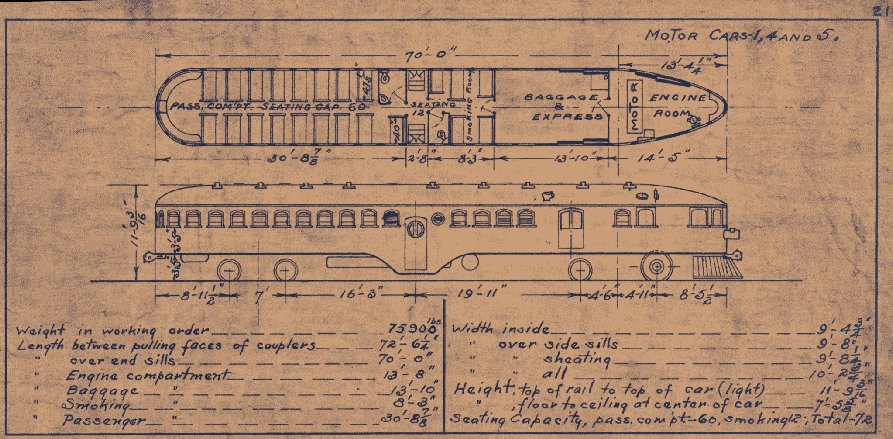 21
MOTOR CARS-1, 4 AND 5.
70'-0"
13'-4¼"
PASS. COMP'T. SEATING CAP. 60
SEATING
12
SMOKING ROOM
BAGGAGE
&
EXPRESS
MOTOR
ENGINE
ROOM
30'-8⅞" 2'-8" 8'-3" 13'-10" 14'-5"
8'-11½" 7' 16'-3" 19'-11" 4'-6" 4'-11" 8'-5½"
Weight in working order 75900 lbs
Length between pulling faces of couplers 72'-6½"
" over end sills 70'-0"
" Engine compartment 13'-8"
" Baggage " 13'-10"
" Smoking " 8'-3"
" Passenger " 30'-8⅞"
Width inside 9'-4
" over side sills 9'-8
" " sheating 9'-8
" " all 10'-2
Height, top of rail to top of car (light) 11'-9
" , floor to ceiling at center of car 7'-5
Seating Capacity, pass. comp't-60, smoking 12, Total-72